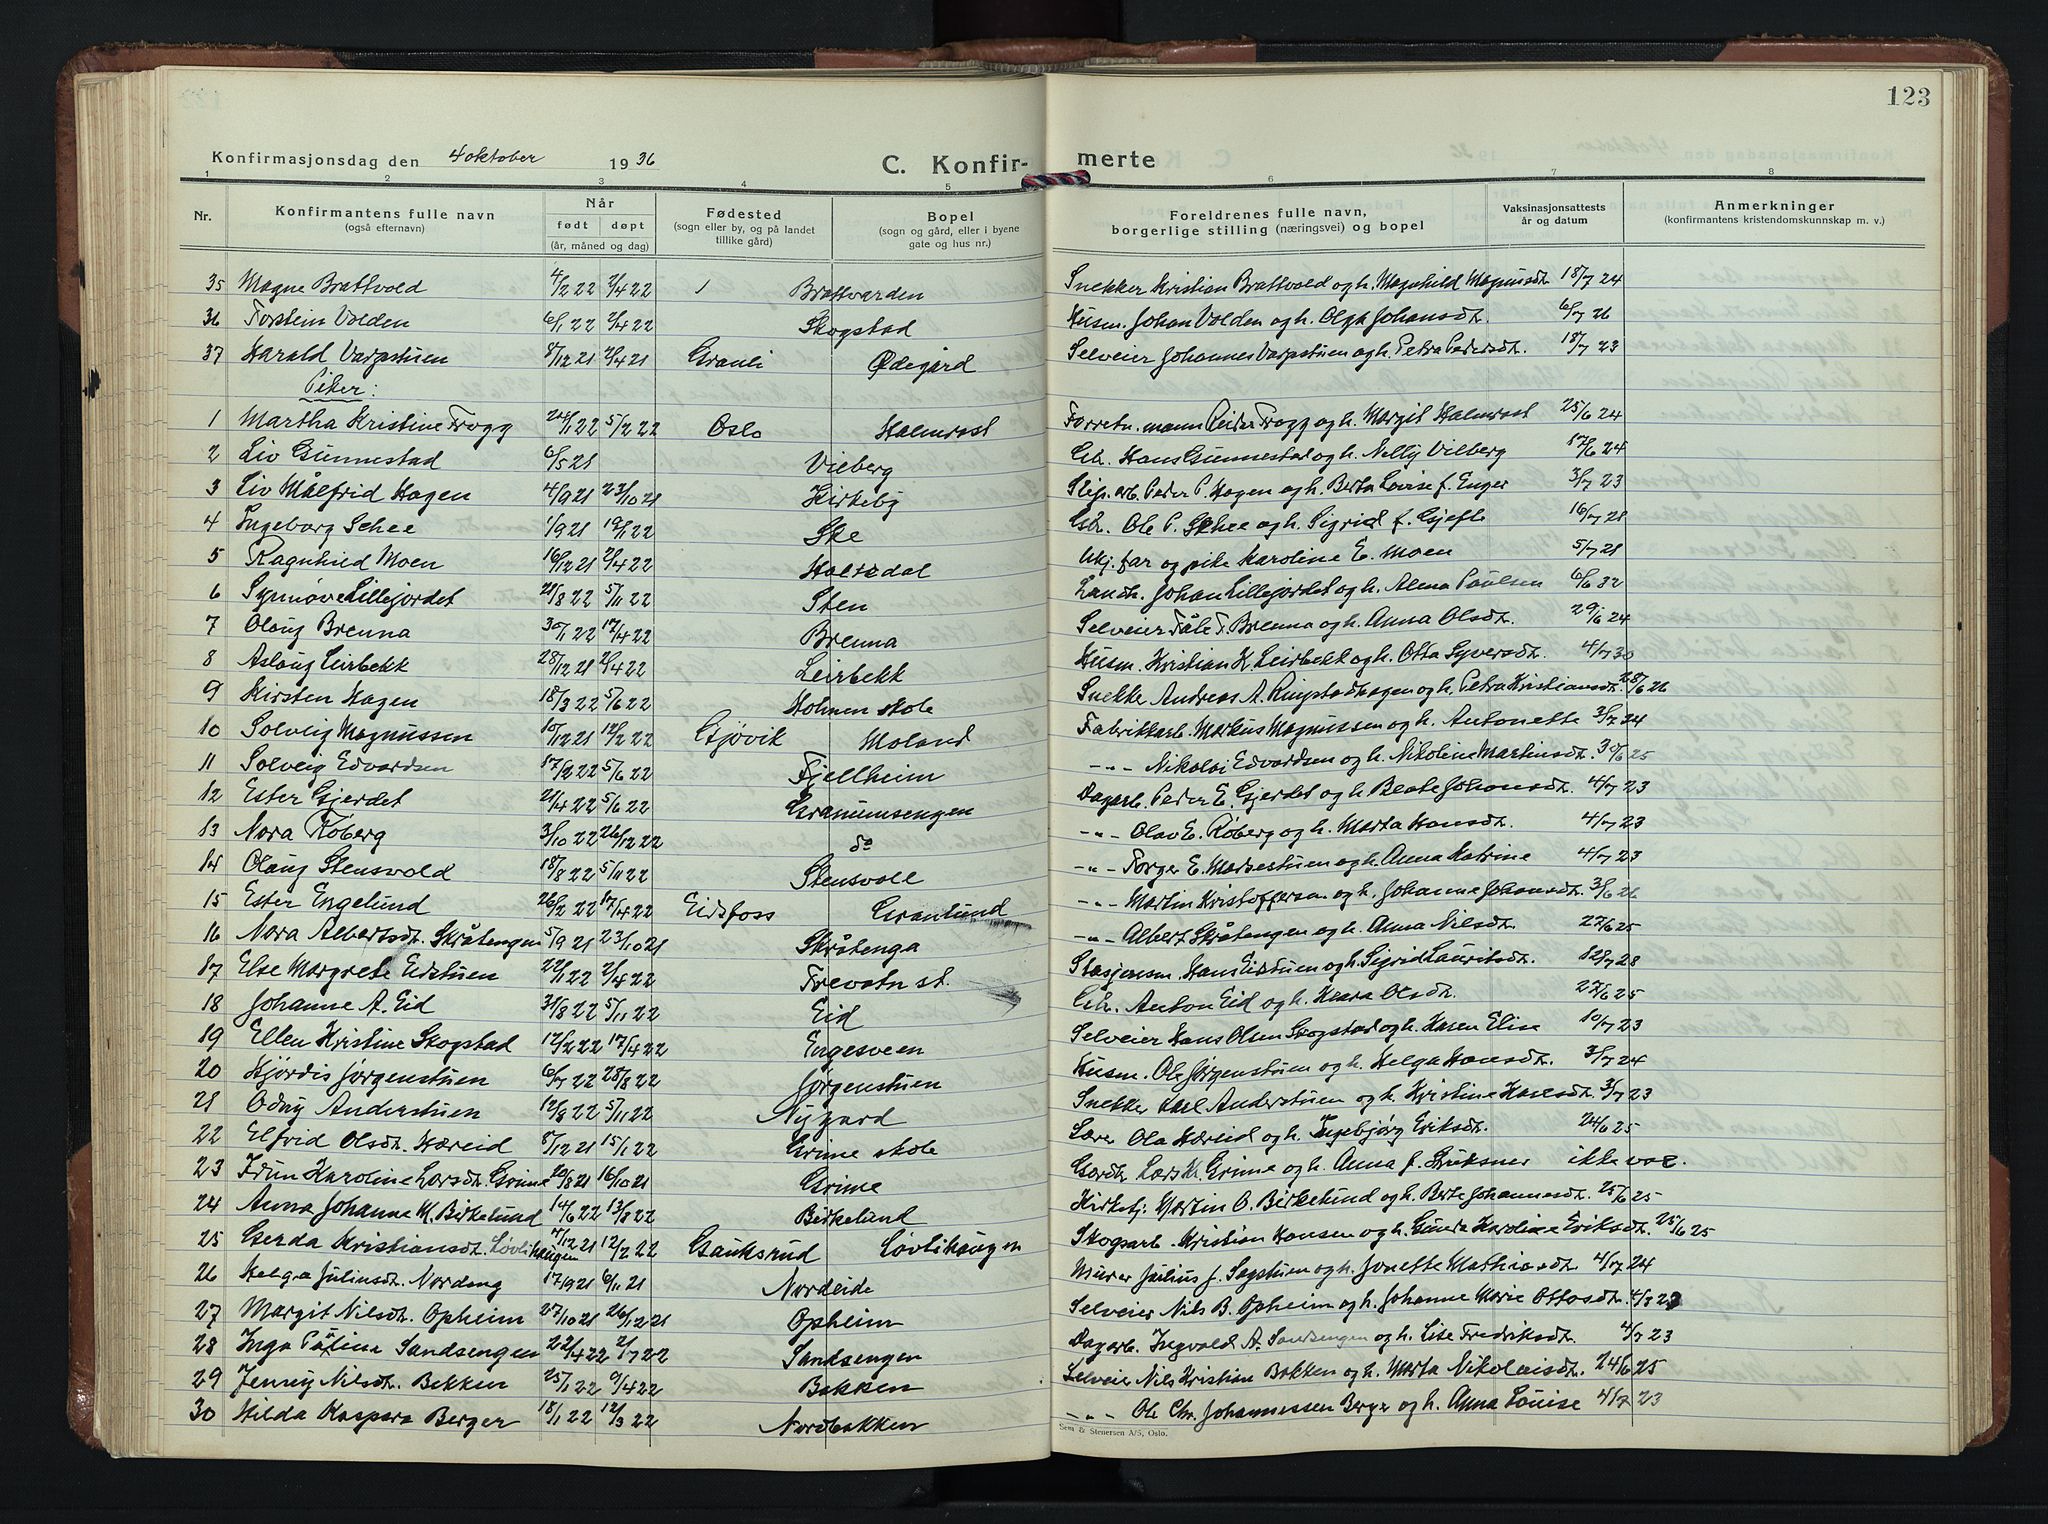 123
Konfirmasjonsdag den 4 oktober 1936 C. Konfirmerte
1 2 3 4 5 6 7 8
Nr. Konfirmantens fulle navn (også efternavn) Når født døpt (år, måned og dag) Fødested (sogn eller by, og på landet tillike gård) Bopel (sogn og gård, eller i byene gate og hus nr.) Foreldrenes fulle navn, borgerlige stilling (næringsvei) og bopel Vaksinasjonsattests år og datum Anmerkninger (konfirmantens kristendomskunnskap m. v.)
35 Magne Brattvold 4/2 22 2/4 22 Brattvarden Snekker Kristian Brattvold og h. Magnhild Magnusdt. 18/7 24
36 Torstein Volden 6/1 22 2/4 22 Skogstad Husm. Johan Volden og h. Olga Johansdt. 6/7 26
37 Harald Varpstuen 8/12 21 2/4 21 Granli Ødegård Selveier Johannes Varpstuen og h. Petra Pedersdt. 18/7 23
Piker:
1 Martha Kristine Frogg 24/1 22 5/2 22 Oslo Halmrast Forretn. mann Peder Frogg og h. Margit Halmrast 25/6 24
2 Liv Gunnestad 6/5 21 Vilberg Gb. Hans Gunnestad og h. Nelly Vilberg 17/6 24
3 Liv Målfrid Hagen 4/9 21 23/10 21 Kirkeby Slip. arb. Peder P. Hagen og h. Berta Lovise f. Enger 3/7 23
4 Ingeborg Schee 1/9 21 19/1 22 Ske Gb. Ole P. Schee og h. Sigrid f. Gjefle 16/7 28
5 Ragnhild Moen 16/12 21 2/4 22 Halsdal Ukj. far og pike Karoline E. Moen 5/7 28
6 Synnøve Lillejordet 21/8 22 5/11 22 Sten Landh. Johan Lillejordet og h. Alma Paulsen 6/6 32
7 Olaug Brenna 30/1 22 17/4 22 Brenna Selveier Påle T. Brenna og h. Anna Olsdt. 29/6 24
8 Aslaug Leirbekk 28/12 21 2/4 22 Leirbekk Husm. Kristian K. Leirbekk og h. Otta Syversdt. 4/7 30
9 Kirsten Hagen 18/3 22 5/6 22 Holmen skole Snekke Andreas A. Ringstadhagen og h. Petra Kristiansdt. 28/6 26
10 Solveig Magnussen 10/12 21 12/2 22 Gjøvik Moland Fabrikkarb. Markus Magnussen og h. Antonette 3/7 24
11 Solveig Edvardsen 17/2 22 5/6 22 Fjellheim -"- Nikolai Edvardsen og h. Nikoline Martinsdt. 30/6 25
12 Ester Gjerdet 21/4 22 5/6 22 Granumsengen Dagarb. Peder E. Gjerdet og h. Beate Johansdt. 4/7 23
13 Nora Røberg 3/10 22 26/12 22 do -"- Olav E. Røberg og h. Marta Hansdt. 4/7 23
14 Olaug Stensvold 18/8 22 5/11 22 Stensvoll -"- Torger E. Marsestuen og h. Anna Katrine 4/7 23
15 Ester Engelund 26/2 22 17/4 22 Eidsfoss Granlund -"- Martin Kristoffersen og h. Johanne Johansdt. 3/6 26
16 Nora Albertsdt. Skråtengen 5/9 21 23/10 21 Skråtenga -"- Albert Skråtengen og h. Anna Nilsdt. 27/6 25
17 Else Margrete Eidstuen 22/1 22 2/4 22 Trevatn st. Stasjonsm. Hans Eidstuen og h. Sigrid Lauritsdt. 12/7 28
18 Johanne A. Eid 31/8 22 5/11 22 Eid Gb. Anton Eid og h. Klara Olsdt. 27/6 25
19 Ellen Kristine Skogstad 12/2 22 17/4 22 Engesveen Selveier Hans Olsen Skogstad og h. Karen Elise 10/7 23
20 Hjørdis Jørgenstuen 6/7 22 28/8 22 Jørgenstuen Husm. Ole Jørgenstuen og h. Helga Hansdt. 3/7 24
21 Odny Anderstuen 12/8 22 5/11 22 Nygard Snekker Karl Anderstuen og h. Kristine Karlsdt. 3/7 23
22 Elfrid Olsdt. Hæreid 8/12 21 15/1 22 Grime skole Lærer Ola Hæreid og h. Ingebjørg Eriksdt. 24/6 25
23 Idun Karoline Larsdt. Grime 20/8 21 16/10 21 Grime Gardb. Lars K. Grime og h. Anna f. Struksner ikke vac.
24 Anna Johanne M. Birkelund 14/6 22 13/8 22 Birkelund Kirketj. Martin O. Birkelund og h. Berte Johannesdt. 25/6 25
25 Gerda Kristiansdt. Løvlihaugen 4/12 21 12/2 22 Gauksrud Løvlihaugen Skogsarb. Kristian Hansen og h. Gunda Karoline Eriksdt. 25/6 25
26 Helga Juliusdt. Nordeng 17/9 21 6/11 21 Nordeide Murer Julius J. Sagstuen og h. Jonette Mathiasdt. 4/7 24
27 Margit Nilsdt. Opheim 27/10 21 26/12 21 Opheim Selveier Nils B. Opheim og h. Johanne Marie Ottosdt. 4/3 23
28 Inga Påline Sandsengen 22/4 22 2/7 22 Sandsengen Dagarb. Ingvald A. Sandsengen og h. Lise Fredriksdt. 4/7 23
29 Jenny Nilsdt. Bakken 25/1 22 9/4 22 Bakken Selveier Nils Kristian Bakken og h. Marta Nikolaisdt. 24/6 25
30 Hilda Kaspara Berger 18/1 22 12/3 22 Nordbakken -"- Ole Chr. Johannessen Berger og h. Anna Louise 4/7 23
Sem & Stenersen A/S, Oslo.